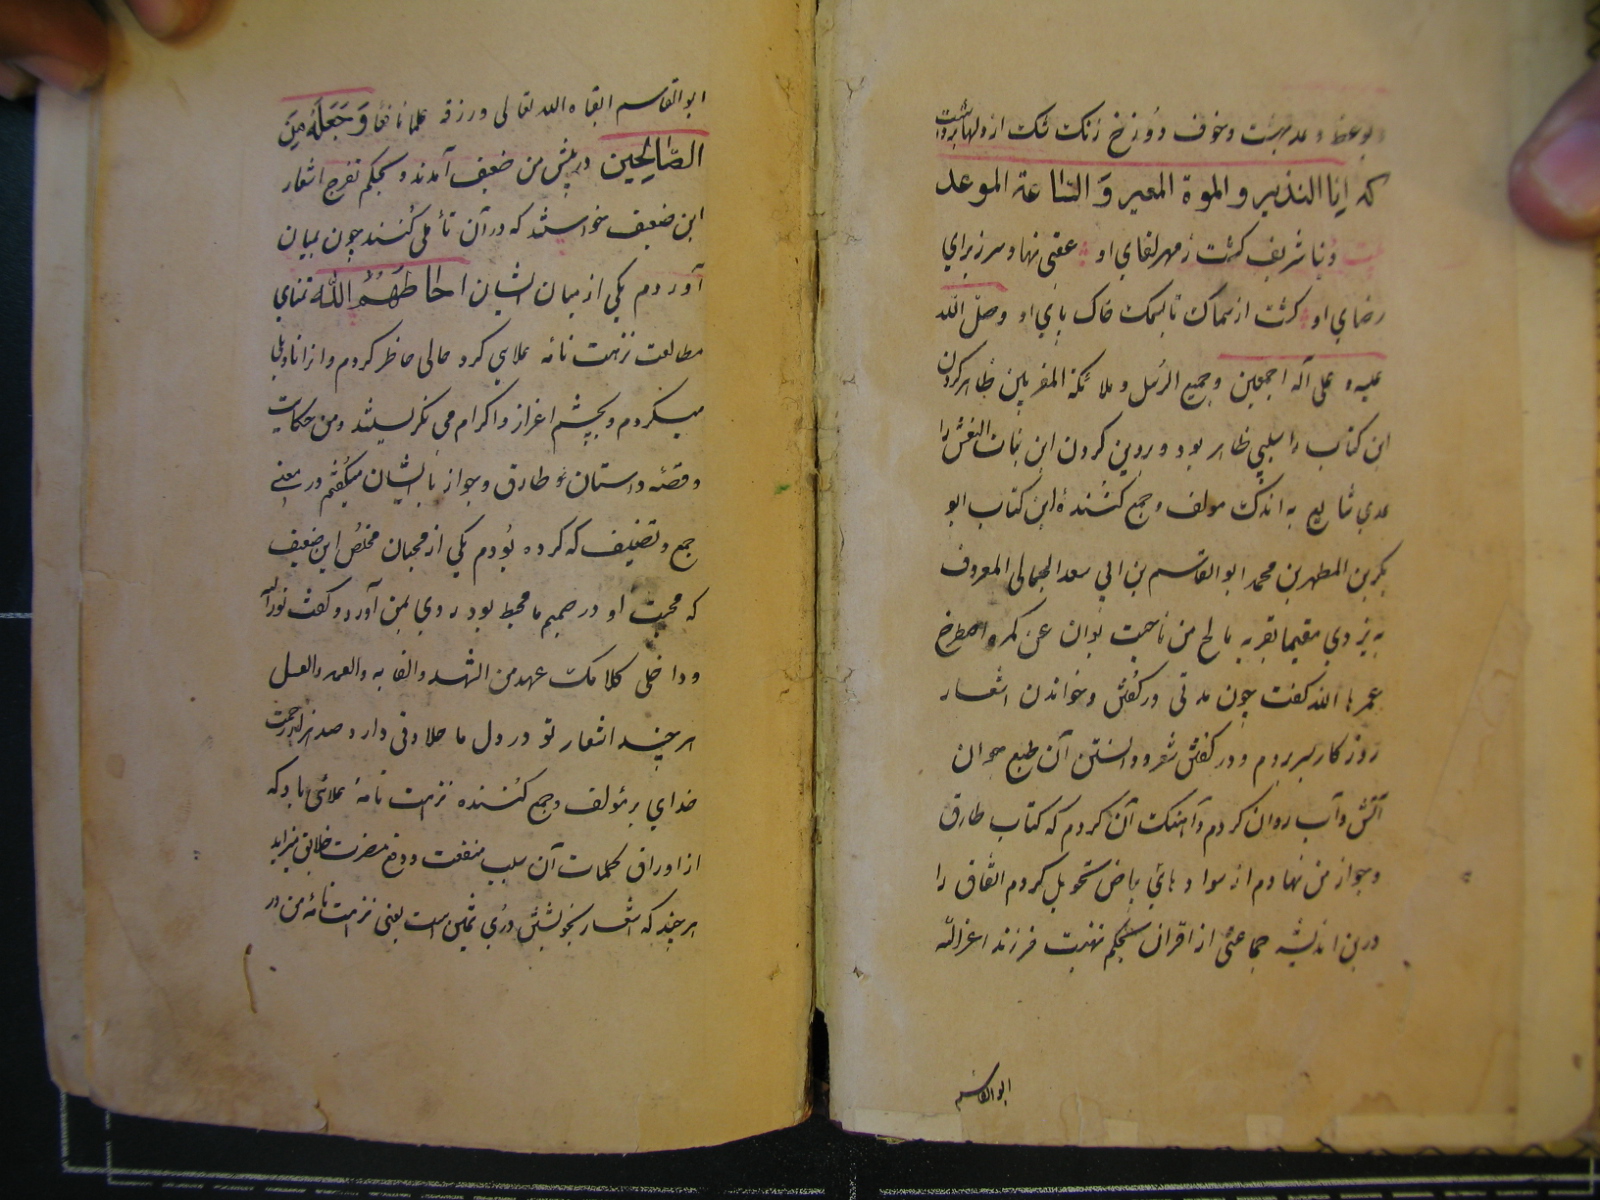 وعظ وعد بهشت وخوف دوزخ زنک شک از دلها برداشت
که انا النذیر والموة المعیر وَ السّاعة الموعد
بیت دنیا شریف کشت ز مهر لقای او عقبی نهاد سر ز برای
رضای او کشت از سماک تا بسمک خاک پای او وصلّ الله
علیه و علی آله اجمعین وجمیع الرسل و ملائکة المقربین ظاهر کردن
این کتاب را سببی ظاهر بود و پروین کردن این بنات النعش را
عدی شایع بدانک مولف وجمع کنندهٔ این کتاب ابو
بکر بن المطهر بن محمد ابوالقاسم بن ابی سعد الجمالی المعروف
به یزدی مقیما بقریه من ناحیت
عمرها الله کفت چون مدتی در کفتن وخواندن اشعار
روزکار بسر بردم و در کفتن شعر و دانستن آن طبع جوان
آتش وآب روان کردم وآهنک آن کردم که کتاب طارق
وجواز من نهادم از سوادهای بیاض تحویل کردم اتفاق را
درین اندیشه جماعتی از اقران بحکم تهنیت فرزند اعز الله
ابوالقاسم
ابوالقاسم ابقاه الله تعالی ورزقه علما نافعا وَجَعَلَهُ مِنَ
الصّالِحین در پیش من ضعیف آمدند و بحکم تفرج اشعار
این ضعیف خواستند که در آن تأملی کنند چون بمیان
آوردم یکی از میان ایشان احاطَهُمُ اللّه تمنای
مطالعت نزهت نامه علایی کرد حالی حاظر کردم و از انا ویلی
میکردم و بچشم اعزاز واکرام می نکریستند ومن حکایت
وقصّه داستان طارق وجواز با ایشان میکفتم در معنی
جمع وتصنیف که کرده بودم یکی از محبان مخلص این ضعیف
که محبت او در صمیم ما محیط بود روی بمن آورد و کفت نورالله
وداخلی کلامک عهد من الشهد والعسل
هر چند اشعار تو در دل ما حلاوتی دارد صد هزار رحمت
خدای بر مؤلف وجمع کننده نزهت نامهٔ علائی باد که
از اوراق کلمات آن سلب منفعت ودفع مضرت خلایق میزاید
هر چند که اشعار بخویشتن درّی ثمین است یعنی نزهت نامهٔ من در